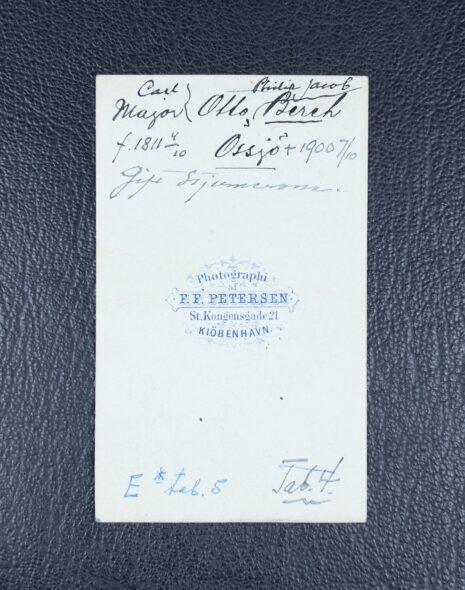 Carl Philip Jacob
Major Otto Berch
f. 1811 4/10 Össjö + 1900 7/10
Gift Stjerncrona.
Photographi
af
F. F. PETERSEN
St. Kongensgade 21
KIÖBENHAVN.
E * tab. 5 Tab. 4.